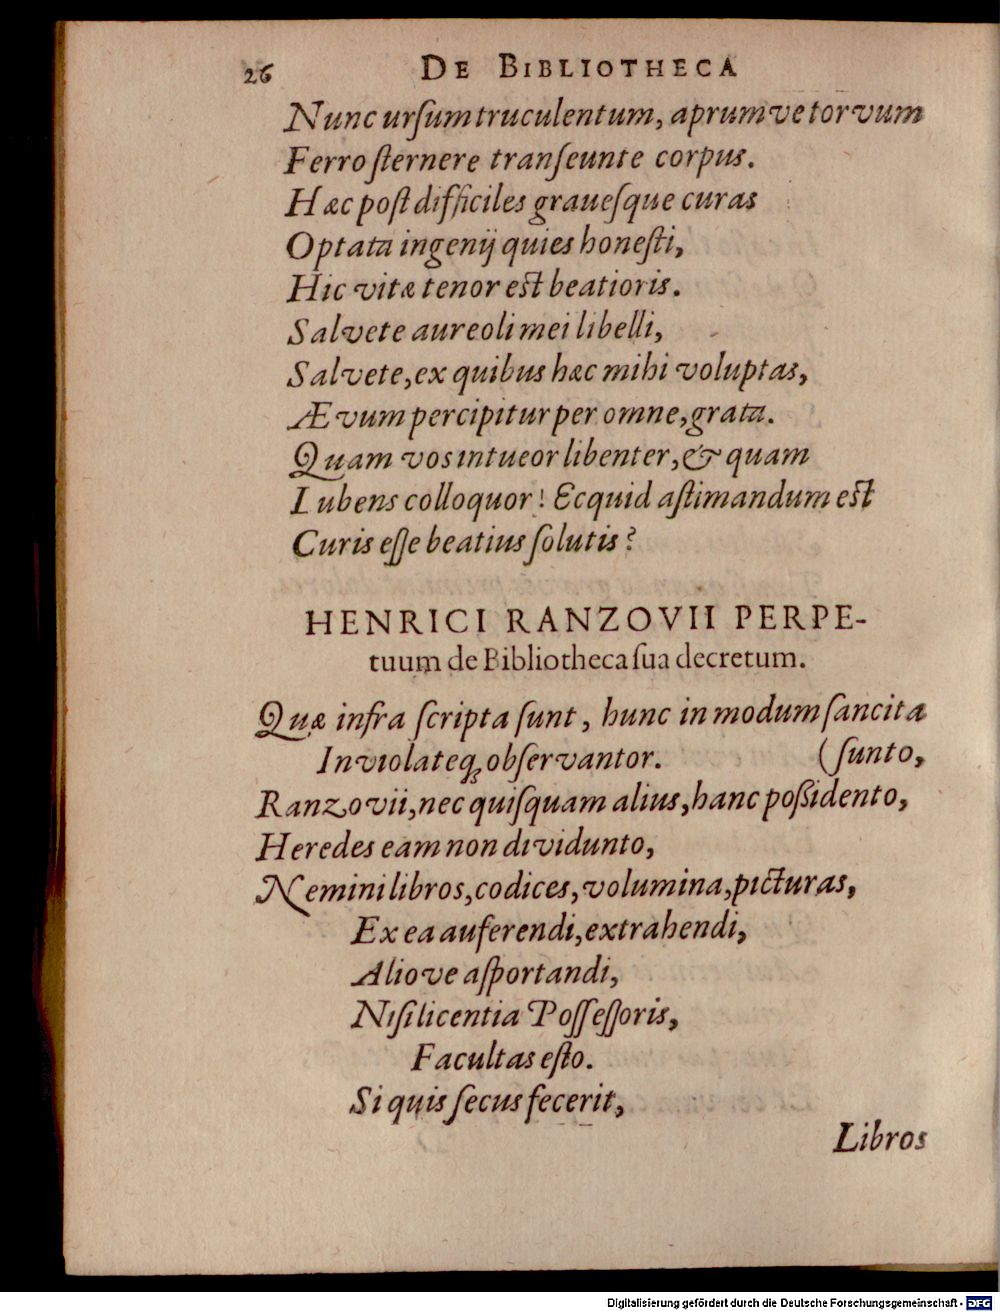 26 DE BIBLIOTHECA
Nunc urſum truculentum, aprumve torvum
Ferro ſternere tranſeunte corpus.
Hæc poſt difficiles graueſque curas
Optata ingenij quies honeſti,
Hic vitæ tenor eſt beatioris.
Salvete aureoli mei libelli,
Salvete, ex quibus hæc mihi voluptas,
Ævum percipitur per omne, grata.
Quam vos intueor libenter, & quam
Lubens colloquor! Ecquid æſtimandum eſt
Curis eſſe beatius ſolutis?
HENRICI RANZOVII PERPE-
tuum de Bibliotheca ſua decretum.
Quæ infra ſcripta ſunt, hunc in modum ſancita
Inviolateq; obſervantor. (ſunto,
Ranzovii, nec quiſquam alius, hanc poßidento,
Heredes eam non dividunto,
Nemini libros, codices, volumina, picturas,
Ex ea auferendi, extrahendi,
Aliove aſportandi,
Niſi licentia Poſſeſſoris,
Facultas eſto.
Si quis ſecus fecerit,
Libros
Digitalisierung gefördert durch die Deutsche Forschungsgemeinschaft - DFG